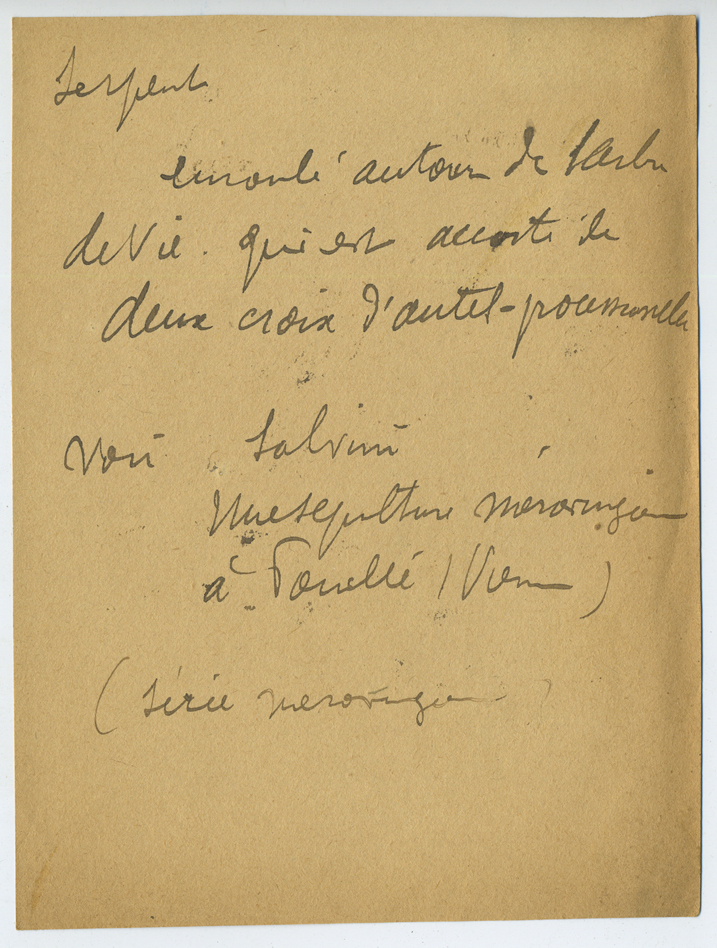 Serpent
enroulé autour de l'Arbre
de Vie. qui est accosté de
deux croix d'autel-processionnelles
voir Salvini
Une sépulture mérovingienne
à (Vienne)
(série mérovingienne)